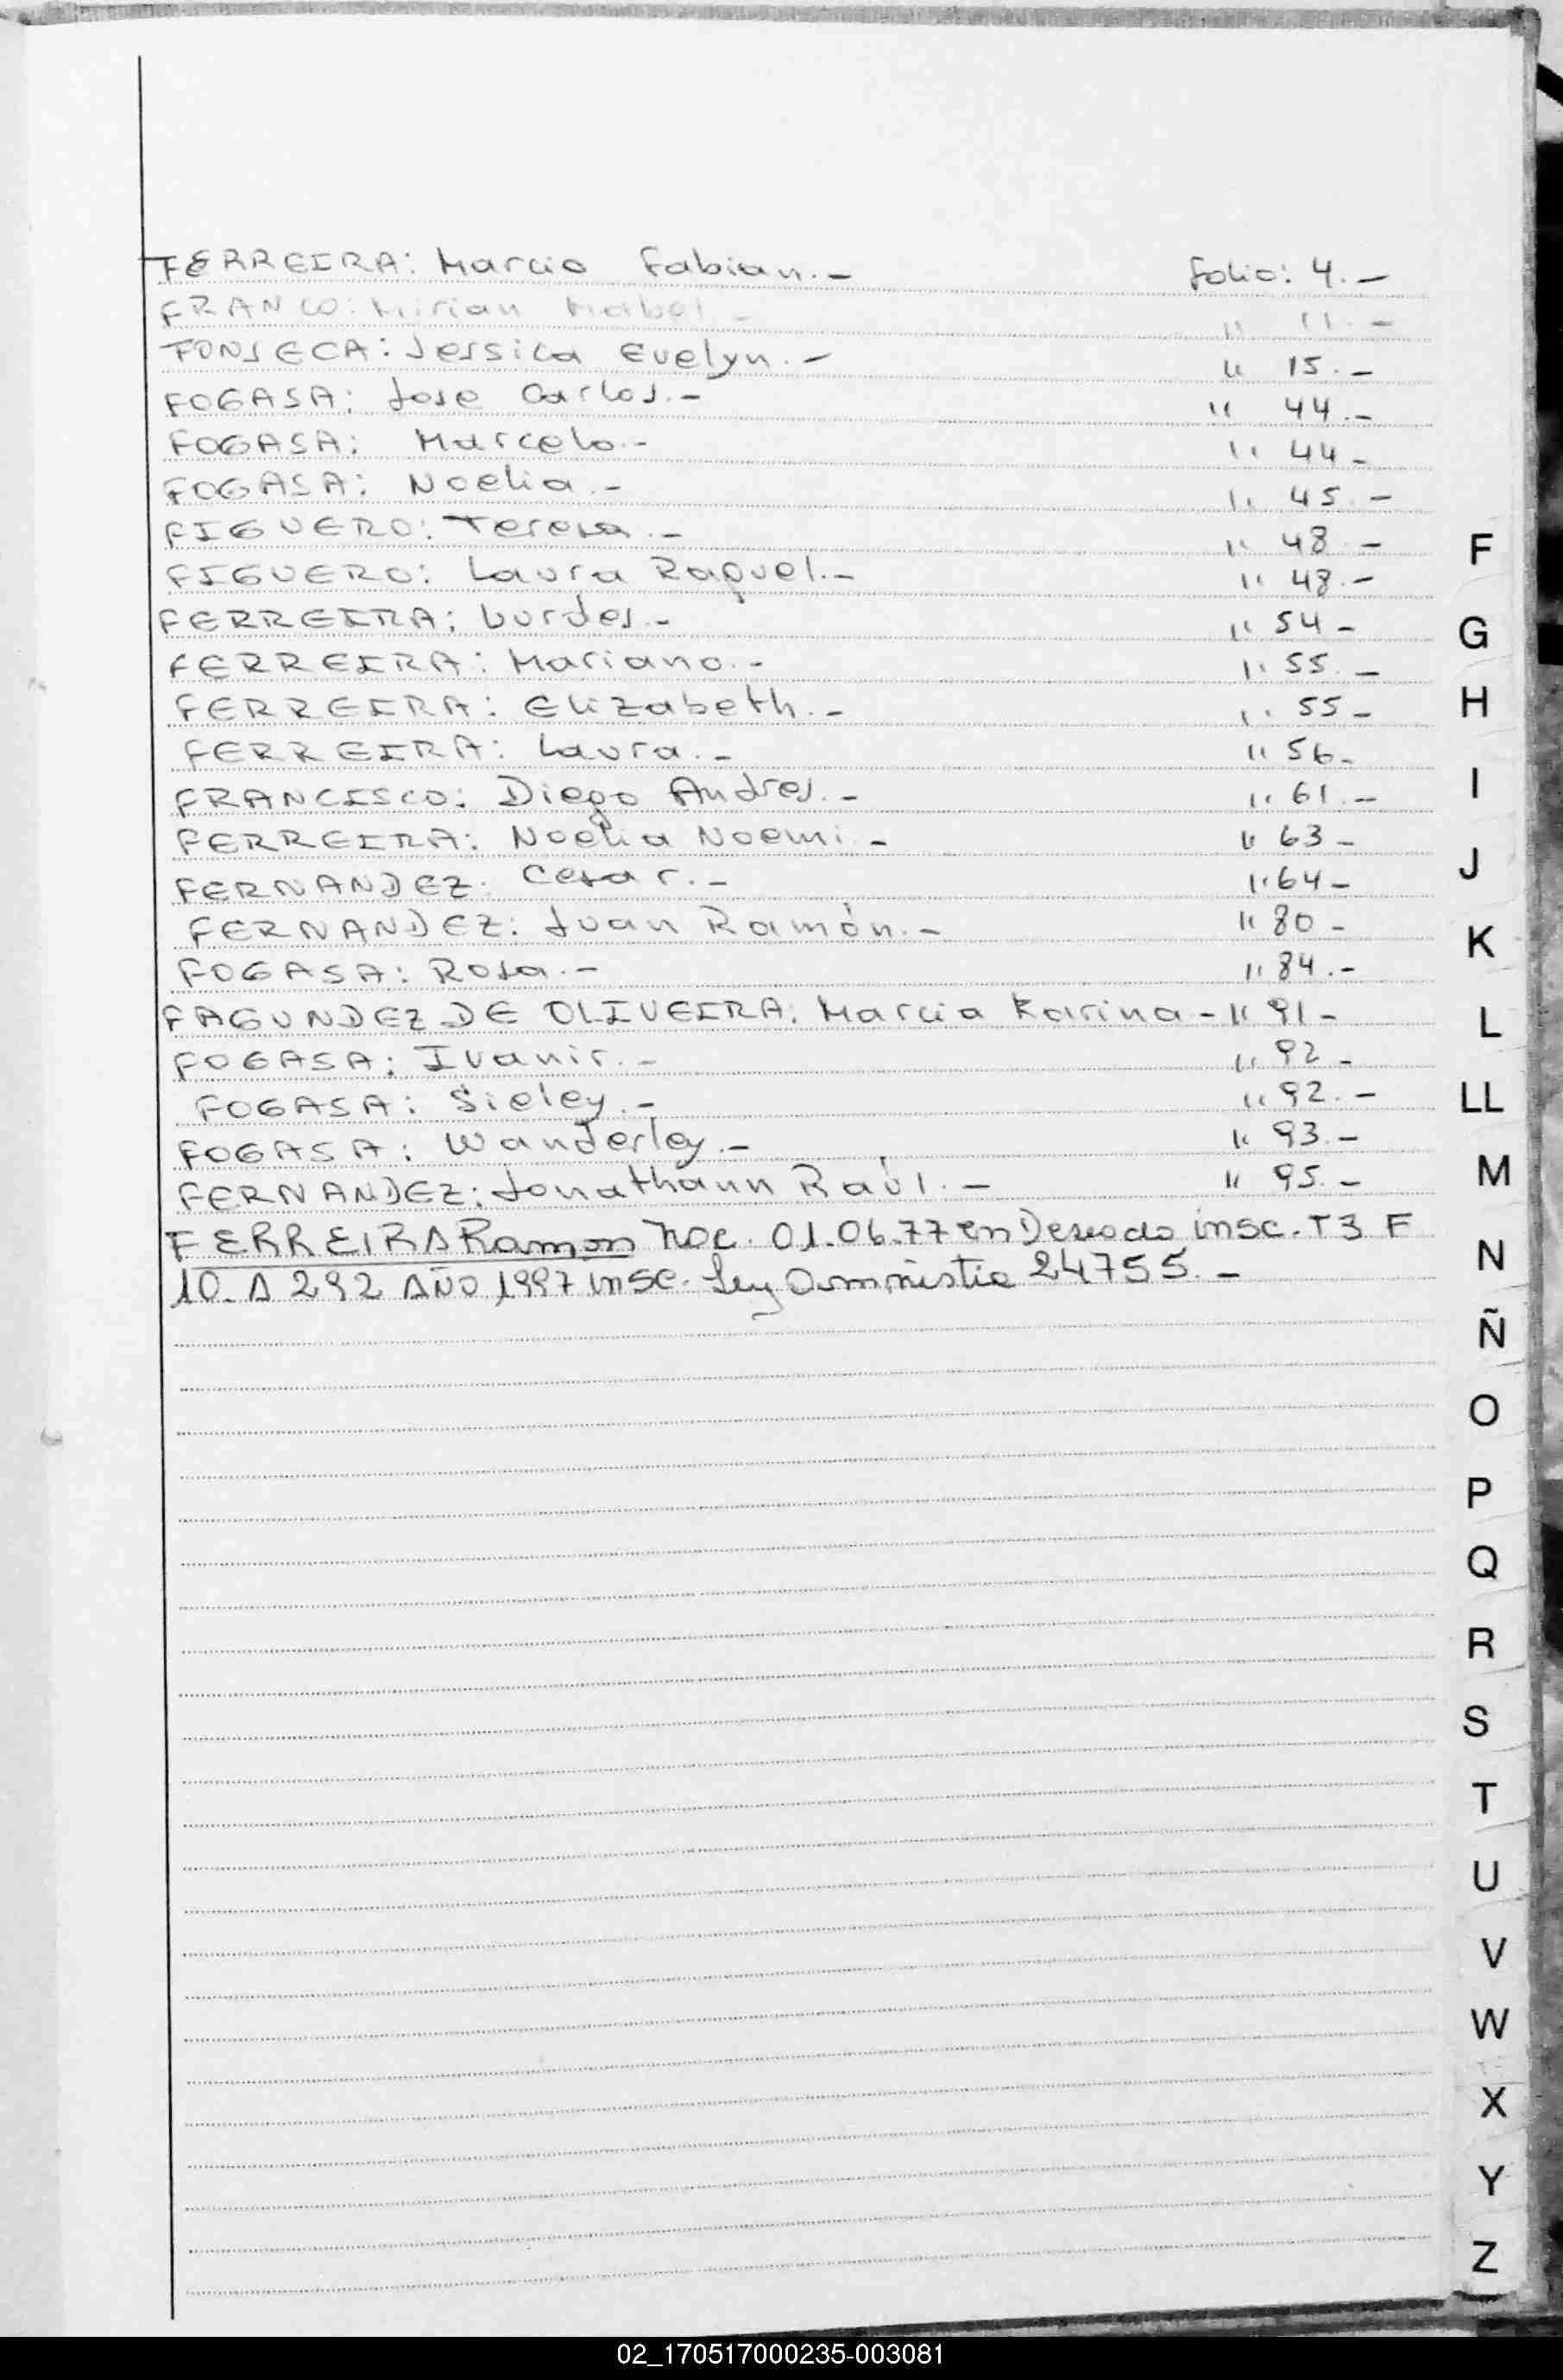 FERREIRA: Marcio Fabian.- folio: 4.-
FRANCO: Mirian Mabel.- " 11.-
FONSECA: Jessica Evelyn.- " 15.-
FOGASA: Jose Carlos.- " 44.-
FOGASA: Marcelo.- " 44-
FOGASA: Noelia.- " 45.-
FIGUERO: Teresa.- " 48.-
FIGUERO: Laura Raquel.- " 48.-
FERREIRA: Lurdes.- " 54-
FERREIRA: Mariano.- " 55.-
FERREIRA: Elizabeth.- " 55-
FERREIRA: Laura.- " 56-
FRANCISCO: Diego Andres.- " 61.-
FERREIRA: Noelia Noemi.- " 63-
FERNANDEZ: Cesar.- " 64-
FERNANDEZ: Juan Ramón.- " 80-
FOGASA: Rosa.- " 84.-
FAGUNDEZ DE OLIVEIRA: Marcia Karina- " 91-
FOGASA: Ivanir.- " 92-
FOGASA: Sieley.- " 92.-
FOGASA: Wanderley.- " 93.-
FERNANDEZ: Jonathann Raúl.- " 95.-
FERREIRA Ramon Noc. 01.06.77 en Deseado insc. T3 F
10. A 292 AÑO 1997 insc. Ley Amnistia 24755.-
F
G
H
I
J
K
L
LL
M
N
Ñ
O
P
Q
R
S
T
U
V
W
X
Y
Z
02_170517000235-003081